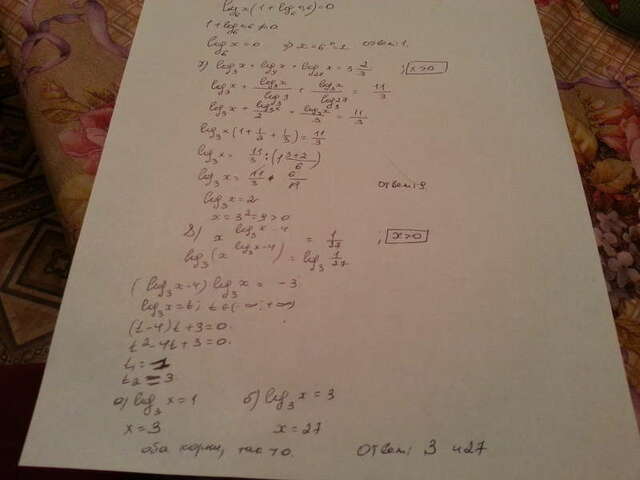 log₆x(1+log₆6)=0
1+log₆6≠0
log₆x=0 ⇒ x=6⁰=1 ответ: 1.
7) log₃x + log₉x + log₂₇x = 3 2/3 ; x>0
log₃x + log₃x/log₃9 + log₃x/log₃27 = 11/3
log₃x + log₃x/2 + log₃x/3 = 11/3
log₃x(1 + 1/2 + 1/3) = 11/3
log₃x = 11/3 : (1 3+2/6)
log₃x = 11/3 · 6/11 ответ: 9.
log₃x = 2
x = 3² = 9 > 0
8) x^(log₃x-4) = 1/27 ; x>0
log₃(x^(log₃x-4)) = log₃ 1/27
(log₃x-4) log₃x = -3
log₃x = t; t∈(-∞; +∞)
(t-4)t+3=0.
t²-4t+3=0.
t₁=1
t₂=3
а) log₃x=1 б) log₃x=3
x=3 x=27
оба корни, т.к. >0. Ответ: 3 и 27